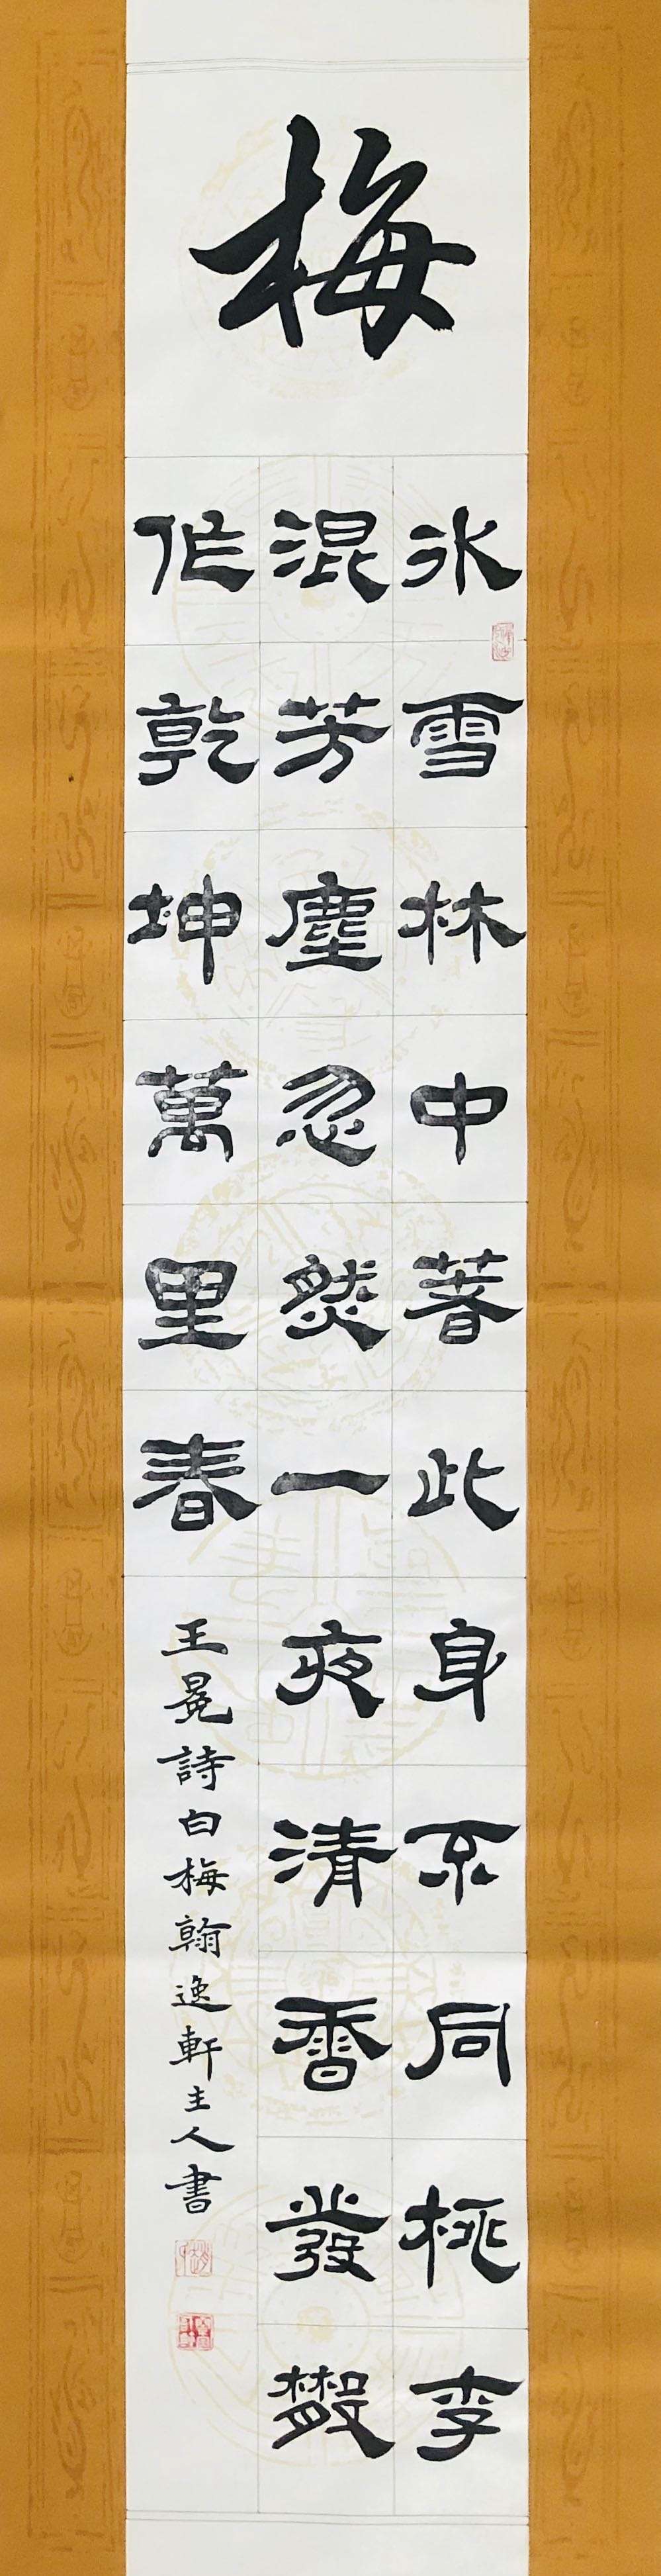 梅
冰雪林中著此身不同桃李
混芳塵忽然一夜清香發散
作乾坤萬里春
王冕詩白梅翰逸軒主人書